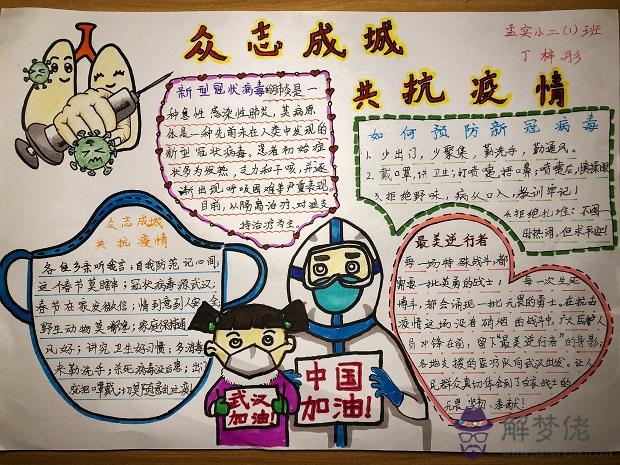 众志成城
共抗疫情
孟实小二(1)班
丁梓彤
新型冠状病毒的肺炎是一
种急性感染性肺炎,其病原
体是一种先前未在人类中发现的
新型冠状病毒。患者初始症
状多为发热、乏力和干咳,并逐
渐出现呼吸困难等严重表现。
目前,以隔离治疗、对症支
持治疗为主
如何预防新冠病毒
1. 少出门,少聚集,勤洗手,勤通风。
2. 戴口罩,讲卫生;打喷嚏,捂口鼻;喷嚏后,慎揉眼
3. 拒绝野味,病从口入,教训牢记!
4. 拒绝扎堆:不图一
时热闹,但求平边!
众志成城
共抗疫情
各位乡亲听我言:自我防范记心间;
这个春节莫瞎串;冠状病毒源武汉;
春节在家发微信;情到意到人安全
野生动物莫嘴馋;
风好;讲究卫生好习惯;多消毒
来勤洗手;杀死病毒没后患;出门
就把口罩戴
最美逆行者
每一场特殊战斗,都
需要一批英勇的战士;每一次生死
博斗,都会涌现一批无畏的勇士。在抗击
疫情这场没有硝烟的战斗中,广大医护人
员冲锋在前,留下"最美逆行者"的身影,
各地支援的医疗队向武汉出发。让人
民群众真切体会到了白衣战士的
无畏、坚韧、奉献!
武汉
加油!
中国
加油!
解梦佬